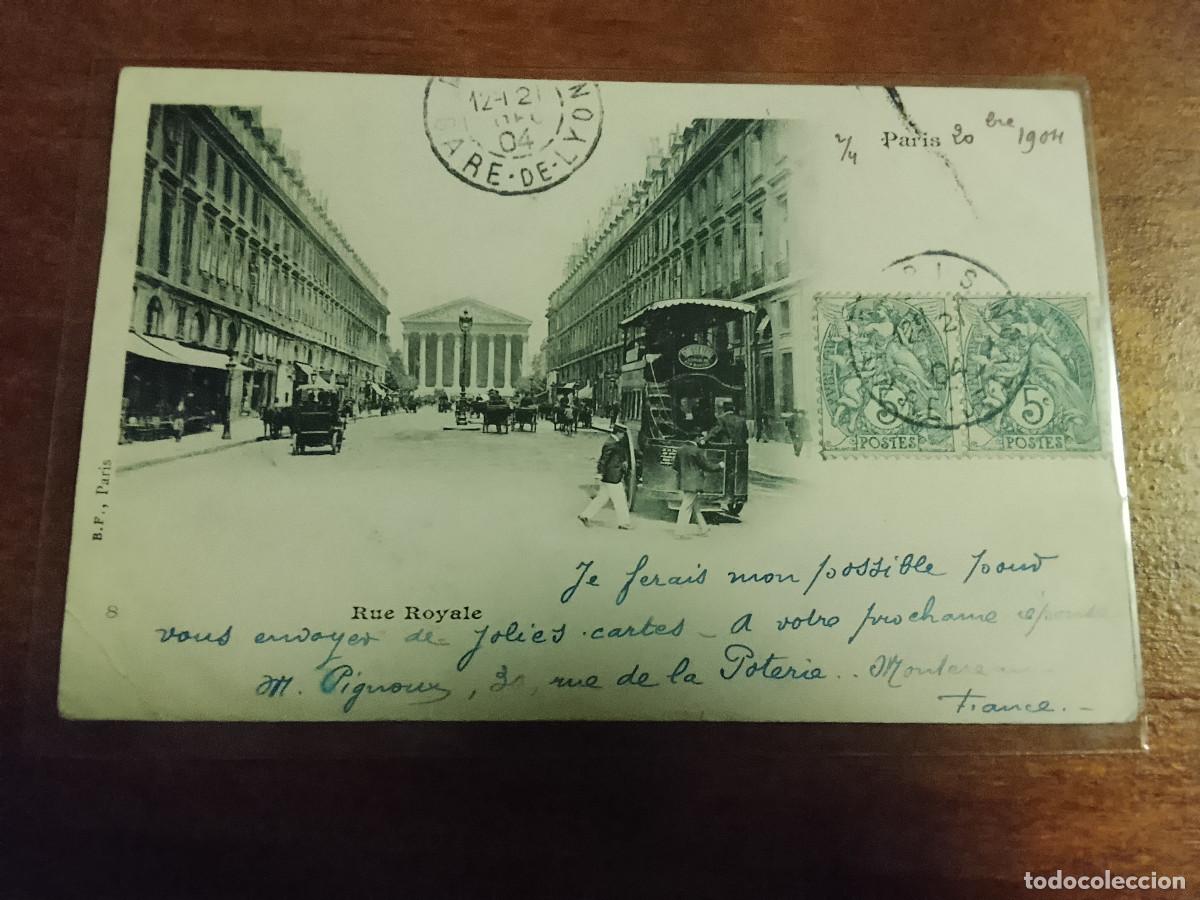 12-1 21
04
GARE-DE-LYON
2/4 Paris 20 bre 1904
PARIS
12 21
04
5c 5c
POSTES POSTES
B.F., Paris
8
Rue Royale
Je ferais mon possible pour
vous envoyer de jolies cartes - A votre prochaine réponse
M. Pignoux, rue de la Poterie..
France.-
todocoleccion